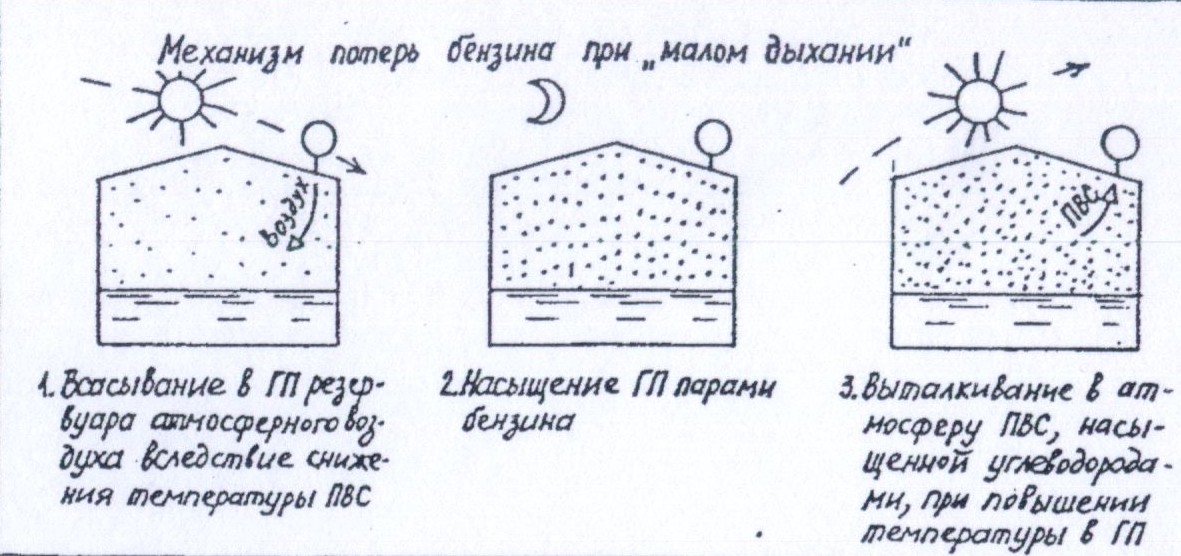 Механизм потерь бензина при „малом дыхании“
воздух
ПВС
1. Всасывание в ГП резер-
вуара атмосферного воз-
духа вследствие сниже-
ния температуры ПВС
2. Насыщение ГП парами
бензина
3. Выталкивание в ат-
мосферу ПВС, насы-
щенной углеводорода-
ми, при повышении
температуры в ГП